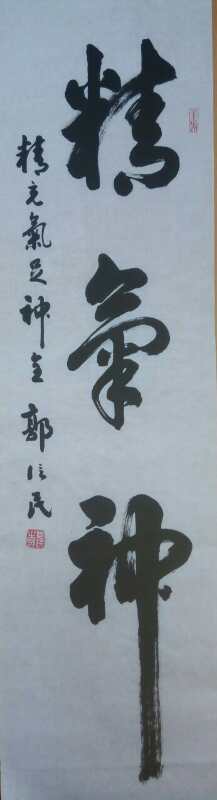 精氣神
精充氣足神全 郭信民